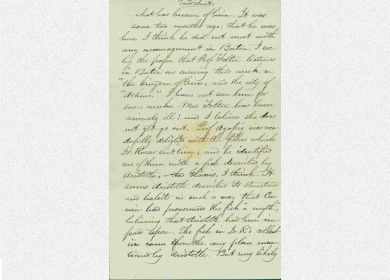 has become of him. It was
some two months ago, that he was
here I think he did not meet with
any encouragement in Boston. I see
by the papers that Prof Felton lectures
in Boston on evening this week, on
"the Kingdom of Greece, and the city of
Athens." I have not seen him for
some weeks. Mrs Felton has been
seriously ill; and I believe she does
not yet go out. Prof Agassiz was won-
derfully delighted with the fishes which
Dr Roeser sent him; and he identified
one of them with a fish described by
Aristotle, — the Glanis, I think. It
seems Aristotle described its structure
and habits in such a way that Cu-
vier had pronounced the fish a myth,
believing that Aristotle had been im-
posed upon. The fish in Dr R's collect-
ion came from the very place men-
tioned by Aristotle. But very likely